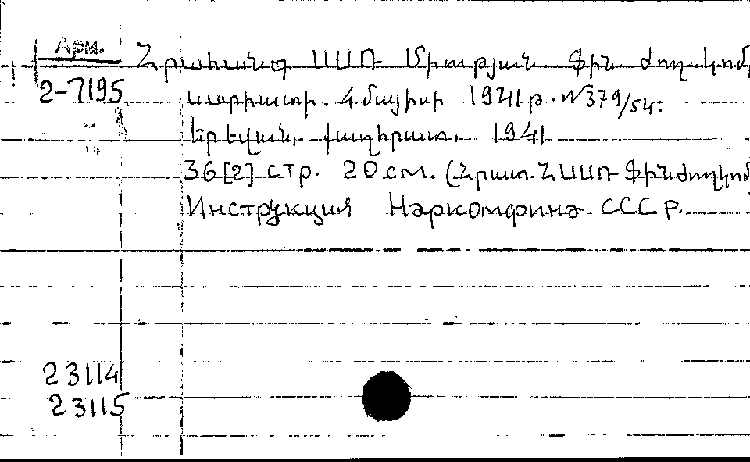 Арм.
2-7195
Հրահանգ ՍՍՌ Միության Ֆին ժող. կոմ
սարիատի. 4 մայիսի 1941 թ. N 379/54:
Երևան, 1941
36[2] стр. 20 см. (Հրատ. ՀՍՍՌ Ֆինժողկոմ
Инструкция Наркомфина СССР.
23114
23115